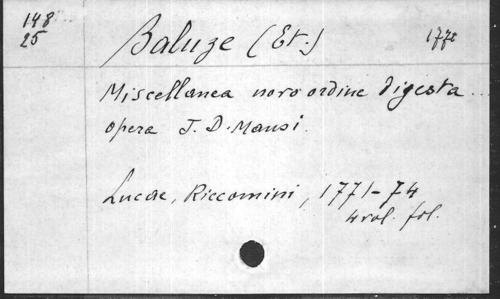 148
25
Baluze (Et.) 1771
Miscellanea novo ordine digesta ...
opera J. D. Mansi.
Lucae, Riccomini, 1771-74
4 vol. fol.